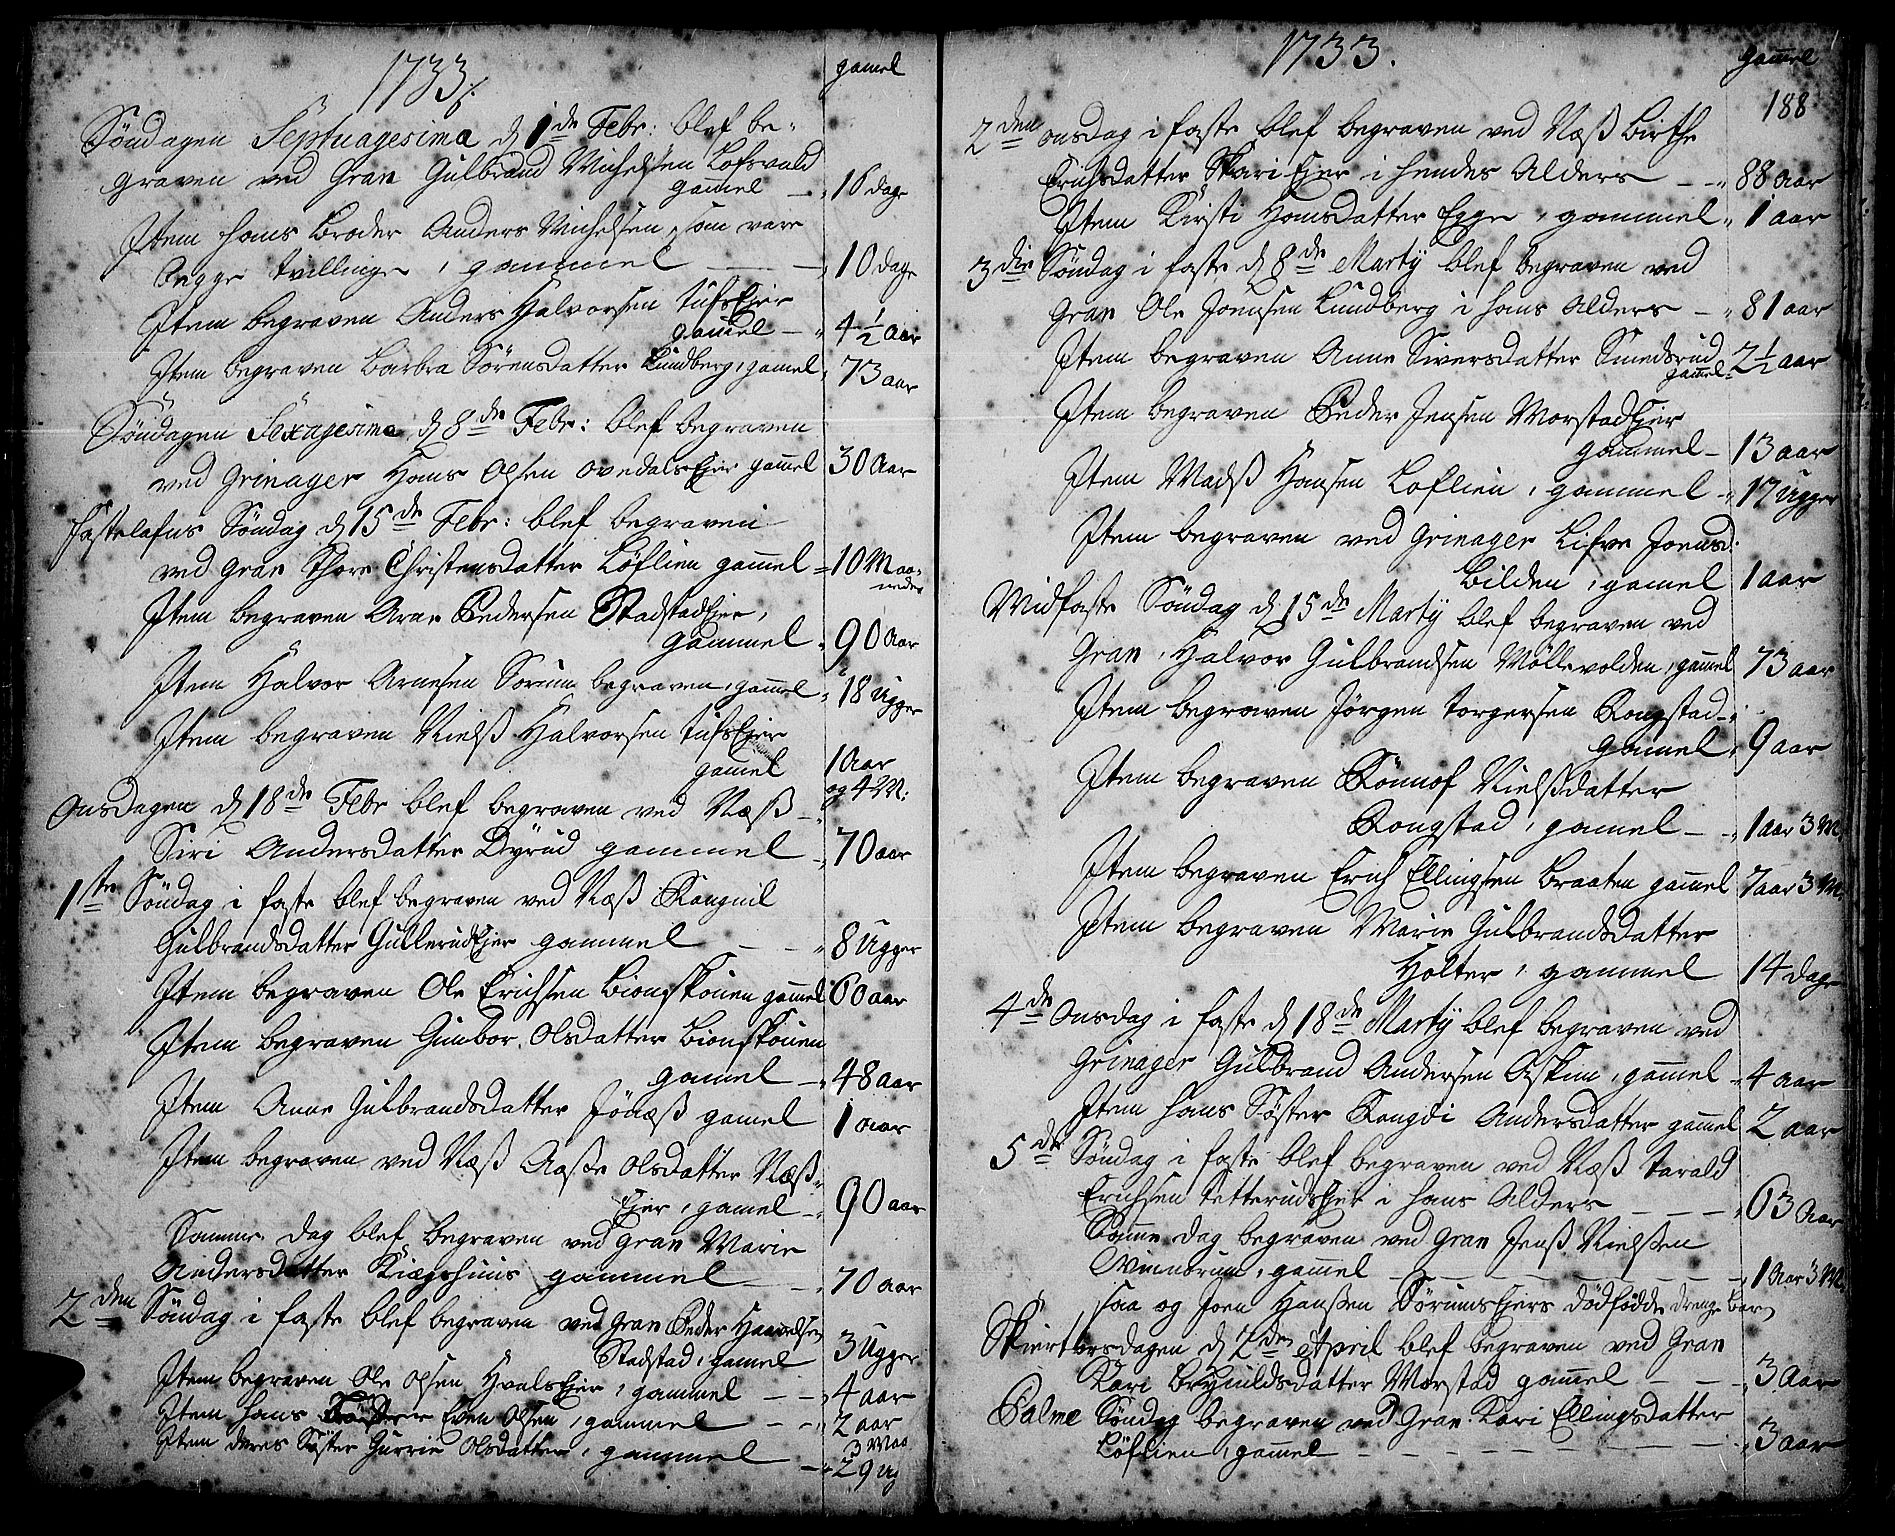 1733
gamel
Søndagen Septuagesima d 1de Febr: blef be-
graven ved Gran Gulbrand Michelsen Lofsvald
gammel 16 dage
Item hans Broder Anders Michelsen, som vare
begge tvillinger, gammel 10 dage
Item begraven Anders Halvorsen tufsEjer
gammel 4½ aar
Item begraven Barbra Sørensdatter Lundberg, gamel 73 aar
Søndagen Sexagesima d 8de Febr: blef begraven
ved Grinager Hans Olsen ovedalsEjer gammel 30 Aar
fastelafns Søndag d 15de Febr: blef begraven
ved Gran Thore Christensdatter Løflien gammel 10 Maa-
neder
Item begraven Arne Pedersen StadstadEjer,
gammel 90 Aar
Item Halvor Arnesen Sorum begraven, gammel 18 Ugger
Item begraven Nielß Halvorsen tufsEjer
gammel 1 Aar
og 4 M:
Onsdagen d 18de Febr blef begraven ved Næß
Siri Andersdatter Dyrud gammel 70 aar
1ste Søndag i faste blef begraven ved Næß Rangnil
Gulbrandsdatter GullerudEjer gammel 8 Ugger
Item begraven Ole Erichsen Bionskouen gammel 60 aar
Item begraven Gunbor Olsdatter Bionskouen
gammel 48 aar
Item Anne Gulbrandsdatter Jønæß gamel 1 aar
Item begraven ved Næß Aaße Olsdatter Næß-
Ejer, gamel 90 aar
Samme Dag blef begraven ved Gran Marie
Andersdatter Kiægshuus gammel 70 aar
2den Søndag i faste blef begraven ved Gran Peder Haavelsen
Stadstad, gamel 3 Ugger
Item begraven Ole Olsen HvalsEjer, gammel 4 aar
Item hans Even Olsen, gammel 2 aar
Item deres Søster Gurrie Olsdatter, gammel 3 Maa
29 Ug
1733.
Gammel
188
2den onsdag i faste blef begraven ved Næß Birthe
Erichsdatter SkariEjer i hendes Alders 88 aar
Item Kirsti Hansdatter Egge, gammel 1 aar
3die Søndag i faste d 8de Martÿ blef begraven ved
Gran Ole Joensen Lundberg i hans Alders 81 aar
Item begraven Anne Siversdatter Smedsrud
gammel 2½ aar
Item begraven Peder Jensen MorstadEjer
gammel 13 aar
Item Madß Hansen Loflien, gammel 17 Ugger
Item begraven ved Grinager Lisve Joensd:
Bilden, gamel 1 aar
Midfaste Søndag d 15de Martÿ blef begraven ved
Gran, Halvor Gulbrandsen Møllevolden, gammel 73 aar
Item begraven Jørgen Torgersen Rongstad
gammel 9 aar
Item begraven Rønnof Nielßdatter
Rongstad, gamel 1 aar 3 M.
Item begraven Erich Ellingsen Braaten gammel 7 aar 3 M.
Item begraven Marie Gulbrandsdatter
Holter, gammel 14 dage
4de Onsdag i faste d 18de Martÿ blef begraven ved
Grinager Gulbrand Andersen Askim, gammel 4 aar
Item hans Søster Rangdi Andersdatter gammel 2 aar
5de Søndag i faste blef begraven ved Næß Tarald
Erichsen TetterudsEjer i hans Alders 63 Aar
Samme dag begraven ved Gran Jenß Nielsen
Vinnorum, gammel 1 Aar 3 M.
saa og Joen Hansen SørumsEjers dødfødde drenge barn
Skiertorsdagen d 2den April blef begraven ved Gran
Kari Brynildsdatter Morstad gammel 3 Aar
Palme Søndag begraven ved Gran Kari Ellingsdatter
Løflien, gammel 3 aar